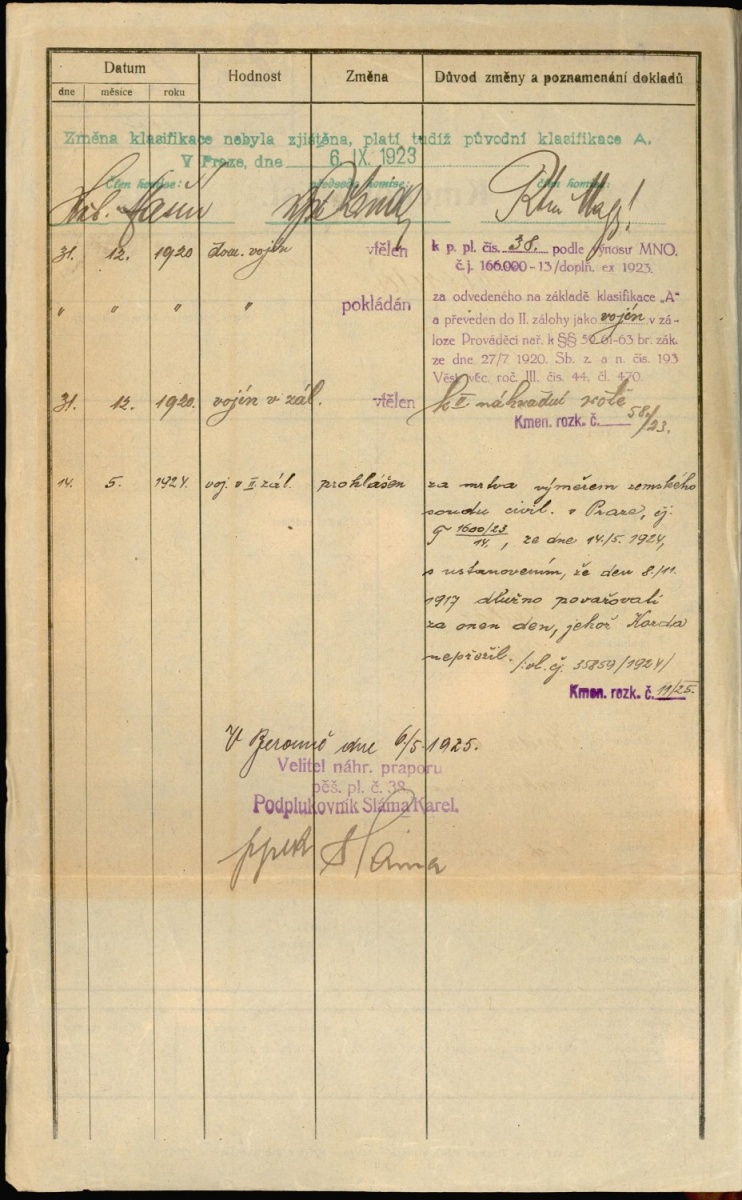 Datum Hodnost Změna Důvod změny a poznamenání dokladů
dne měsíce roku
Změna klasifikace nebyla zjištěna, platí tudíž původní klasifikace A.
V Praze, dne 6. IX. 1923
Člen komise: předseda komise: člen komise:
31. 12. 1920 dom. vojín vtělen k p. pl. čís. 38. podle výnosu MNO.
č. j. 166.000-13/doplň. ex 1923.
" " " " pokládán za odvedeného na základě klasifikace „A"
a převeden do II. zálohy jako vojín v zá-
loze Prováděcí nař. k §§ 61-63 br. zák.
ze dne 27/7 1920. Sb. z. a n. čís. 193
Věst. věc. roč. III. čís. 44. čl. 470.
31. 12. 1920. vojín v zál. vtělen k II náhradní rotě
Kmen. rozk. č. 58/23.
14. 5. 1924. voj. v II. zál. prohlášen za mrtva výměrem zemského
soudu civil. v Praze, čj.
1600/23
14. , ze dne 14./5. 1924,
s ustanovením, že den 8./11.
1917 dlužno považovati
za onen den, jehož Korda
nepřežil. /:ol. čj. 35859/1924/
Kmen. rozk. č. 11/25.
V Berouně dne 6/5 1925.
Velitel náhr. praporu
pěš. pl. č. 38
Podplukovník Sláma Karel.
pplk Sláma